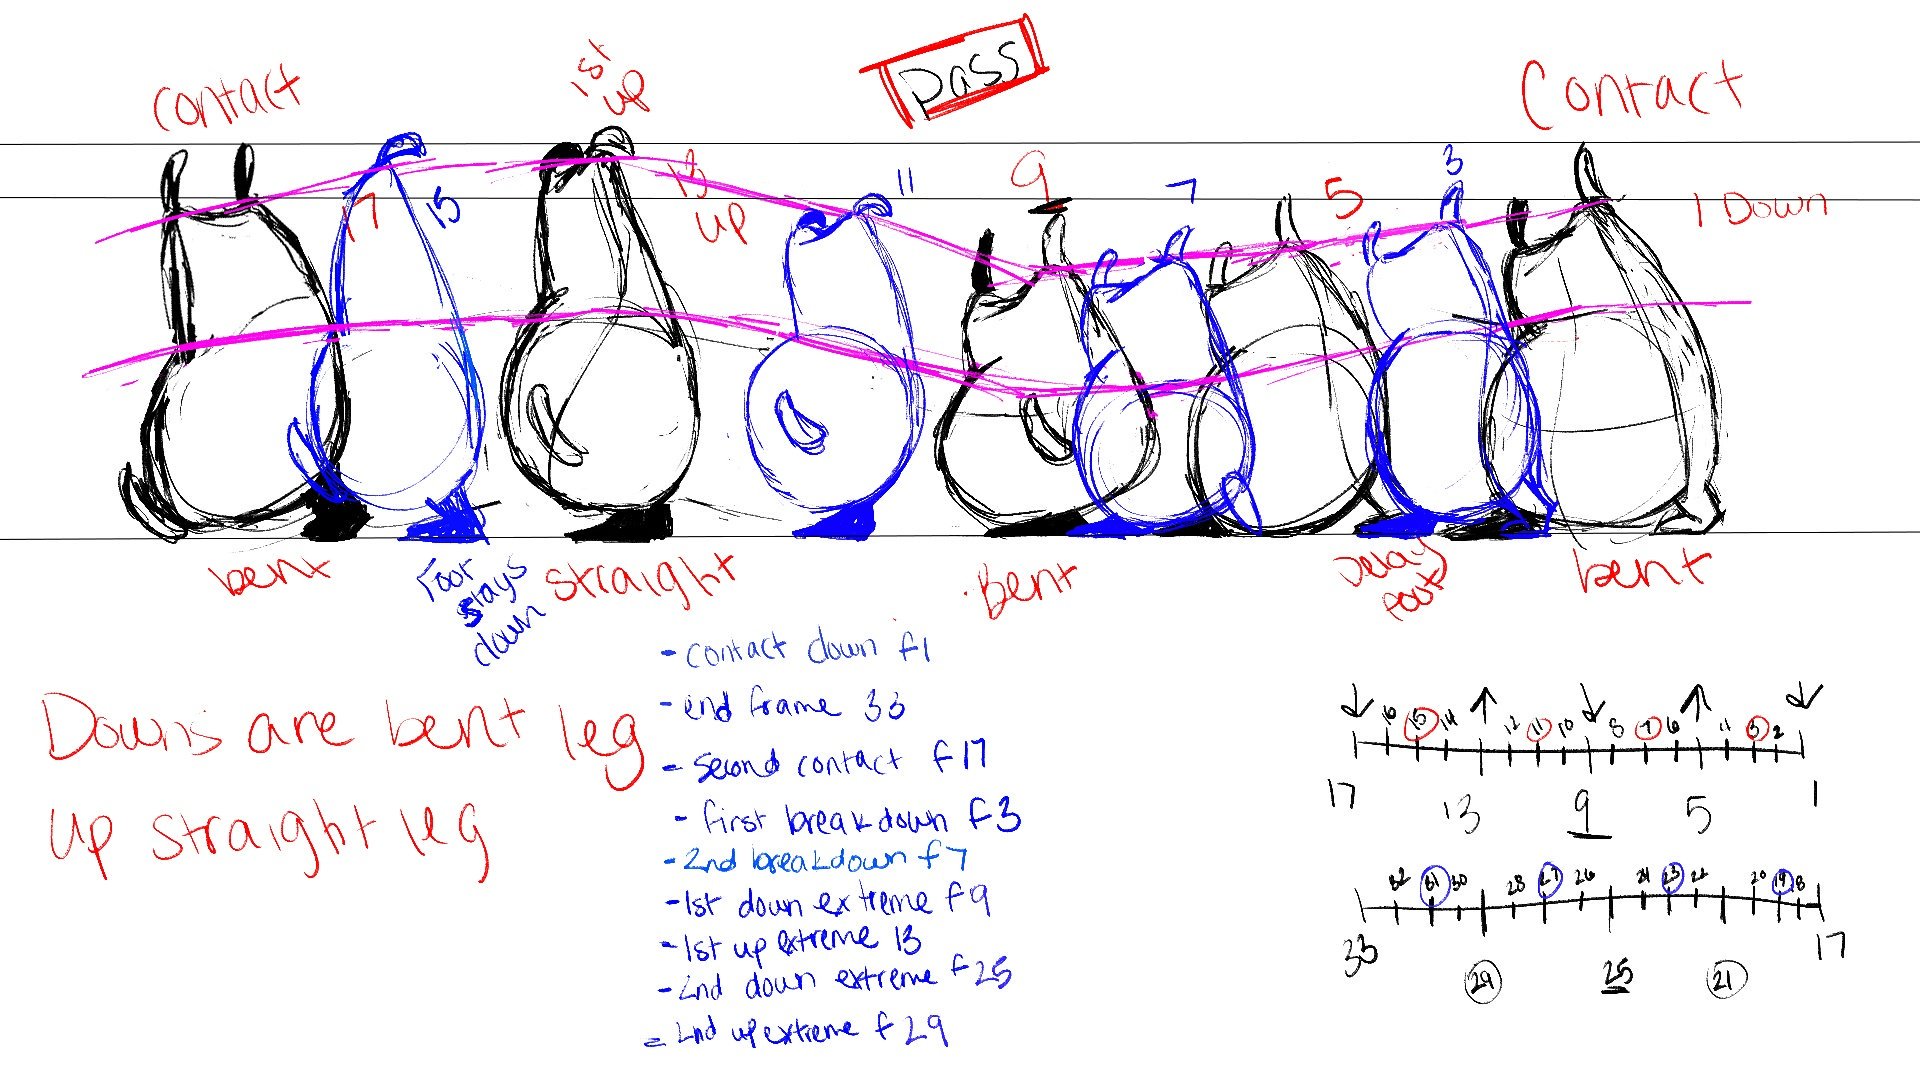 contact
1st
up
Pass
Contact
17
15
13
up
11
9
7
5
3
1 Down
bent
Foot
stays
down
straight
Bent
Delay
foot
bent
Downs are bent leg
up straight leg
- contact down f1
- end frame 33
- Second contact f17
- first breakdown f3
- 2nd breakdown f7
- 1st down extreme f9
- 1st up extreme 13
- 2nd down extreme f25
- 2nd up extreme f29
16 15 14 12 11 10 8 7 6 3 2
17 13 9 5 1
32 31 30 28 27 26 24 23 22 20 19 18
33 29 25 21 17